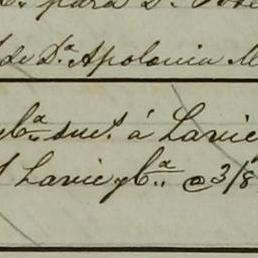 para D.
de D.ª Apolonia M
y C.ª suc.s á Lavie
Lavie y C.ª @ 3/8